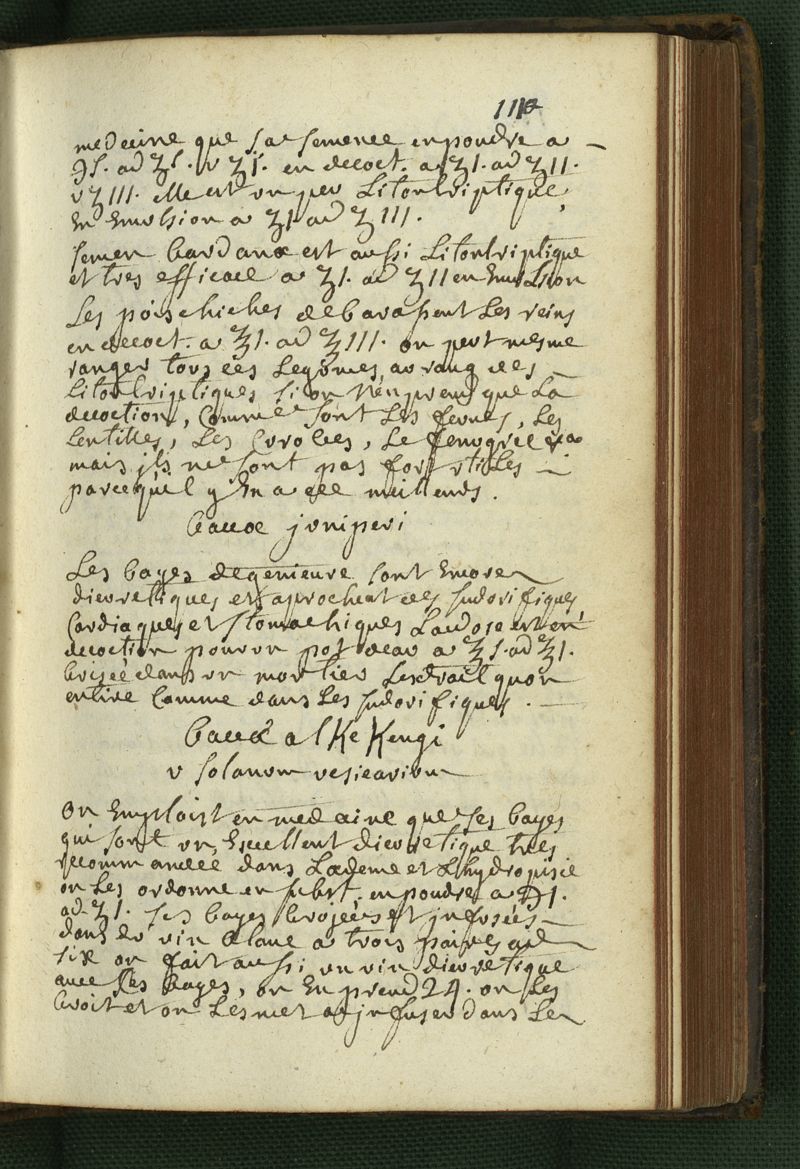 medecine que sa semence en poudre a
℈s. ad ʒs. v ʒj. en decoct. a ʒI. ad ʒII.
v ʒIII. elle est un peu Litontriptique,
En Emulsion a ʒI ad ʒIII.
semen bardanæ est aussi Litontriptique
et tres efficace a ʒI. ad ʒII en Emulsion
Les pois chiches debarasent Les reins
en decoct. a ʒI. ad ʒIII. on peut mesme
ranger tous ces Legumes, au rang des
Litontriptiques si on N'en prend que La
decoction, Comme sont Les feves, Les
Lentilles, Les Orobes, Le fenugrec
mais jls ne sont pas fort utiles
parcequ'il y En a de meilleurs.
baccæ juniperi
Les bayes degenieure sont Encore
diuretiques et aprochent des sudorifiques,
Cardiaques et stomachiques La dose est en
decoction pour un pot deau a ʒs. ad ʒI.
brisée dans un mortier Lextrait quon
en tire Comme dans Les sudorifiques.
baccæ alKeKengi
v solanum vesicarium
On Emploist en medecine que ses bayes
qui sont un Excellent diuretique tres
recommandée dans L'œdeme et L'hydropisie
on Les ordonne en subst. en poudre a ℈I.
ad ʒI. ses bayes brojées et jnfusées
dans du vin blanc a trois paires ad
six on fait aussi un vin diuretique
avec ses bayes, on En prend 24. on Les
broit et on Les met a jnfuser dans Le